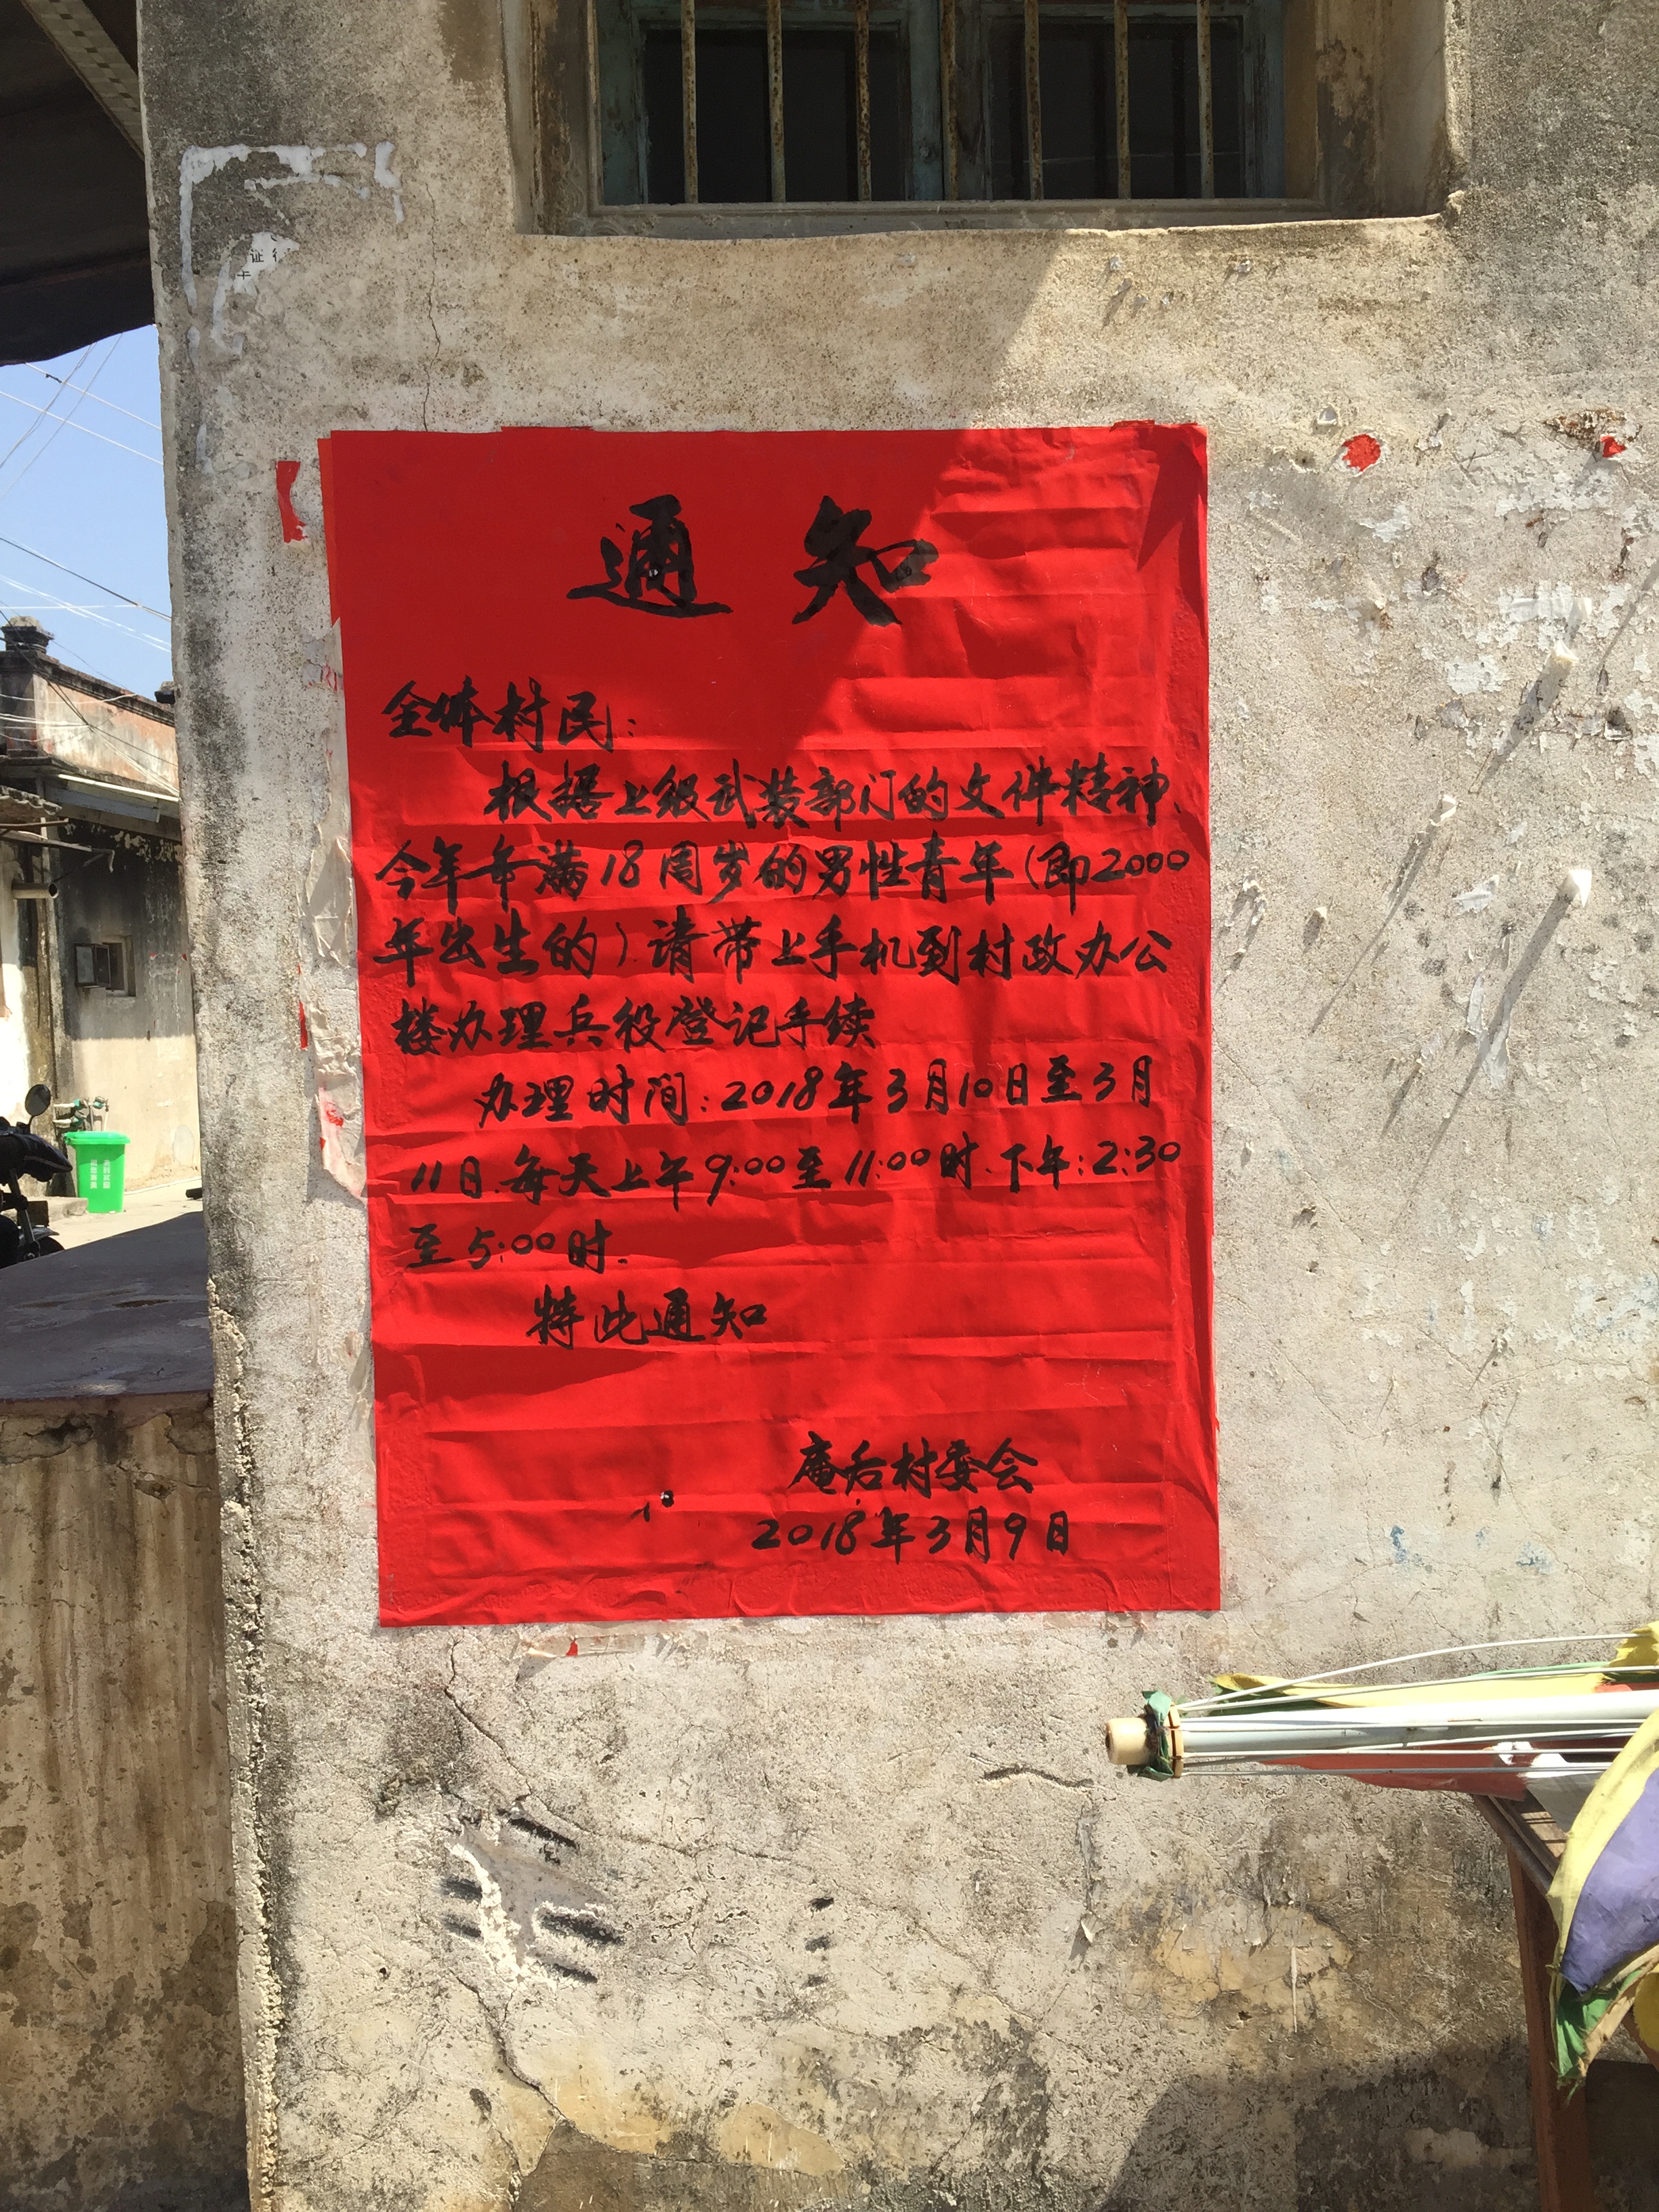 通知
全体村民：
根据上级武装部门的文件精神、
今年年满18周岁的男性青年（即2000
年出生的）请带上手机到村政办公
楼办理兵役登记手续
办理时间：2018年3月10日至3月
11日.每天上午9:00至11:00时.下午:2:30
至5:00时.
特此通知
庵后村委会
2018年3月9日